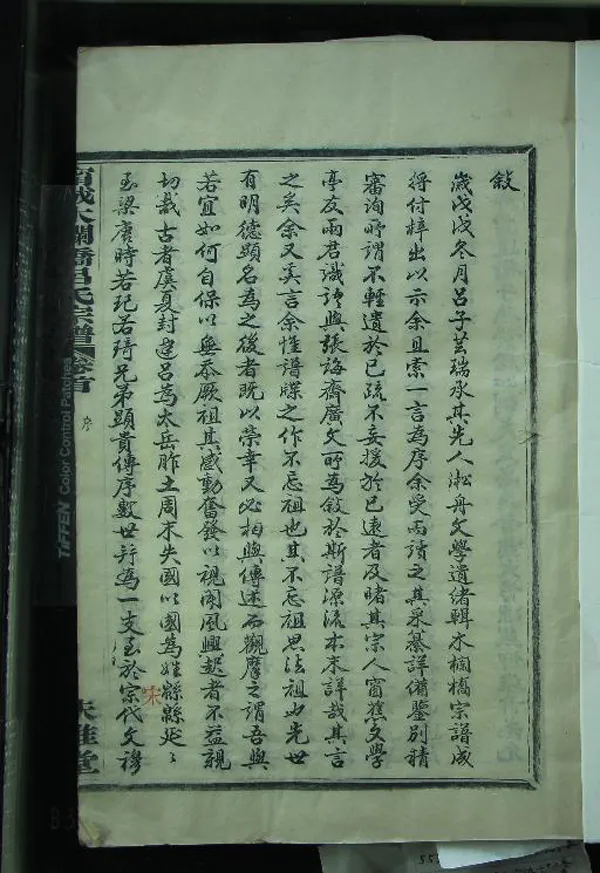 敍
歲戊戌冬月呂子芸瑞承其先人淞舟文學遺緒輯木欄橋宗譜成
將付梓出以示余且索一言為序余受而讀之其采綦詳備鑒別精
審洵所謂不輕遺於已疏不妄援於已遠者及睹其宗人窗蕉文學
亭友雨君識語與張誨齋廣文所為敍於斯譜源流本末詳哉其言
之矣余又奚言余惟譜牒之作不忘祖也其不忘祖思法祖也先世
有明德顯名為之後者既以榮幸又必相與傳述而觀摩之謂吾與
若宜如何自保以無忝厥祖其感動奮發以視聞風興起者不益親
切哉古者虞夏封建呂為太岳胙土周末失國以國為姓緜緜延〻
至梁唐時若玘若琦兄弟顯貴傳序數世并為一支至於宗代文穆
宋
大欄橋呂氏宗譜
卷首
序
堂
TIFFEN Color Control Patches